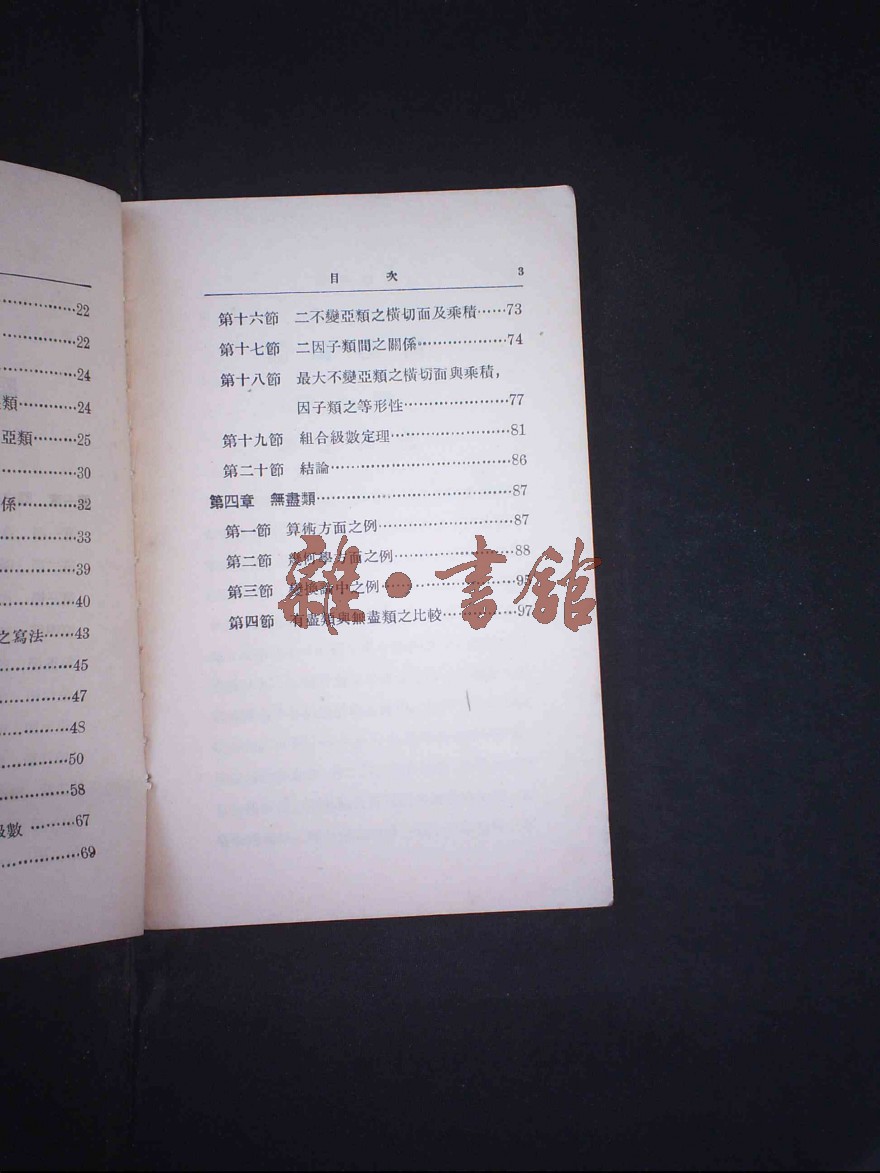 22
22
24
類············24
亞類········25
30
係············32
33
39
40
之寫法······43
45
47
48
50
58
級數·········67
69
目 次 3
第十六節 二不變亞類之橫切面及乘積······73
第十七節 二因子類間之關係··················74
第十八節 最大不變亞類之橫切面與乘積,
因子類之等形性·····················77
第十九節 組合級數定理························81
第二十節 結論····································86
第四章 無盡類·······································87
第一節 算術方面之例···························87
第二節 幾何學方面之例························88
第三節 變換論中之例···························95
第四節 有盡類與無盡類之比較···············97
雜·書館